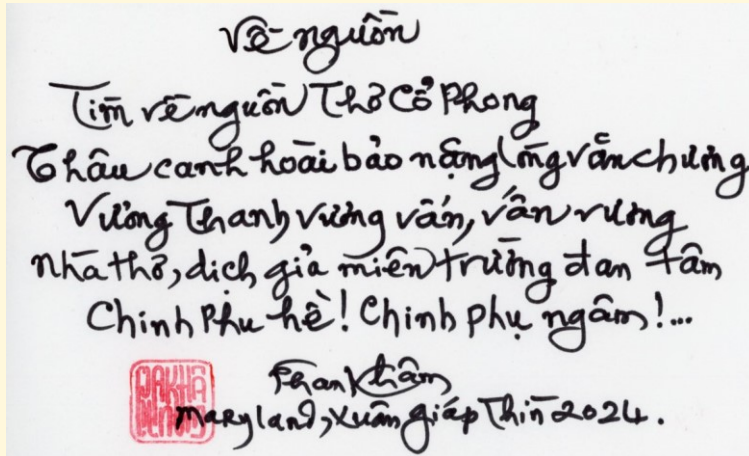 Về nguồn
Tìm về nguồn Thơ Cổ Phong
Thâu canh hoài bảo nặng lòng văn chương
Vương Thanh vương vấn, vấn vương
Nhà thơ, dịch giả miên trường đan tâm
Chinh Phu hề! Chinh phụ ngâm!...
Phan Khâm
Maryland, Xuân Giáp Thìn 2024.